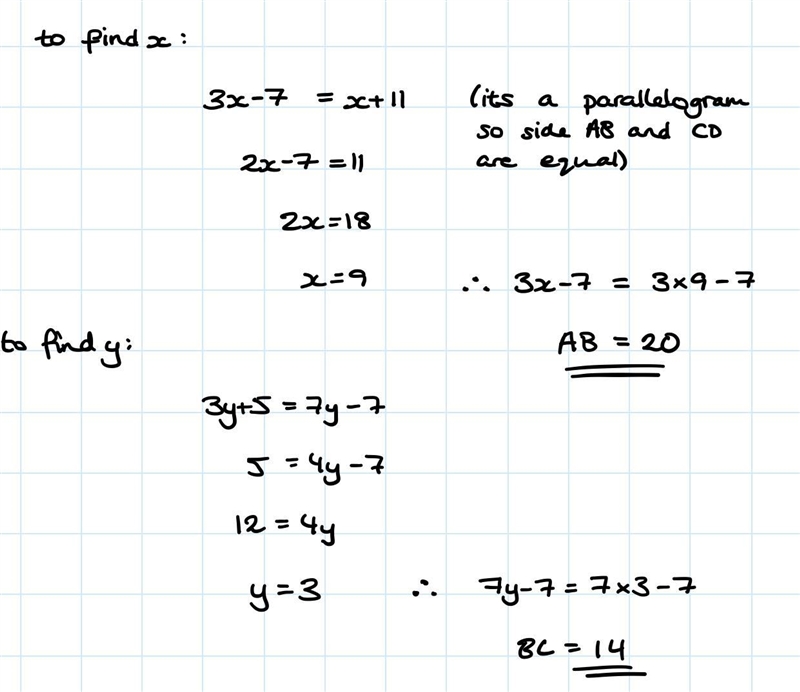 to find x:
3x-7 = x+11 (its a parallelogram
so side AB and CD
2x-7 = 11 are equal)
2x=18
x=9 ∴ 3x-7 = 3×9-7
to find y: AB = 20
3y+5 = 7y-7
5 = 4y-7
12 = 4y
y = 3 ∴ 7y-7 = 7×3-7
BC = 14